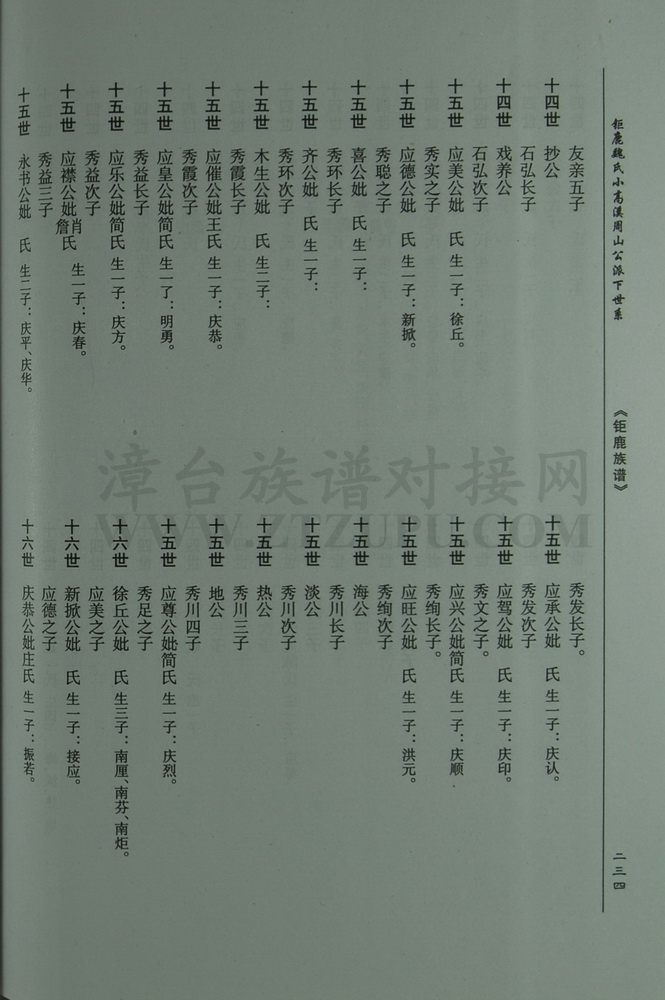 钜鹿魏氏小高溪周山公派下世系
《钜鹿族谱》
二三四
友亲五子
十四世 抄公
石弘长子
十四世 戏养公
石弘次子
十五世 应美公妣 氏 生一子：徐丘。
秀实之子
十五世 应德公妣 氏 生一子：新掀。
秀聪之子
十五世 喜公妣 氏 生一子：
秀环长子
十五世 齐公妣 氏 生一子：
秀环次子
十五世 木生公妣 氏 生二子：
秀霞长子
十五世 应催公妣王氏 生一子：庆恭。
秀霞次子
十五世 应皇公妣简氏 生一了：明勇。
秀益长子
十五世 应乐公妣简氏 生一子：庆方。
秀益次子
十五世 应襟公妣肖詹氏 生一子：庆春。
秀益三子
十五世 永书公妣 氏 生二子：庆平、庆华。
秀发长子。
十五世 应承公妣 氏 生一子：庆认。
秀发次子
十五世 应驾公妣 氏 生一子：庆印。
秀文之子。
十五世 应兴公妣简氏 生一子：庆顺
秀绚长子。
十五世 应旺公妣 氏 生一子：洪元。
秀绚次子
十五世 海公
秀川长子
十五世 淡公
秀川次子
十五世 热公
秀川三子
十五世 地公
秀川四子
十五世 应尊公妣简氏 生一子：庆烈。
秀足之子
十六世 徐丘公妣 氏 生三子：南厘、南芬、南炬。
应美之子
十六世 新掀公妣 氏 生一子：接应。
应德之子
十六世 庆恭公妣庄氏 生一子：振若。
漳台族谱对接网
WWW.ZTZUPU.COM